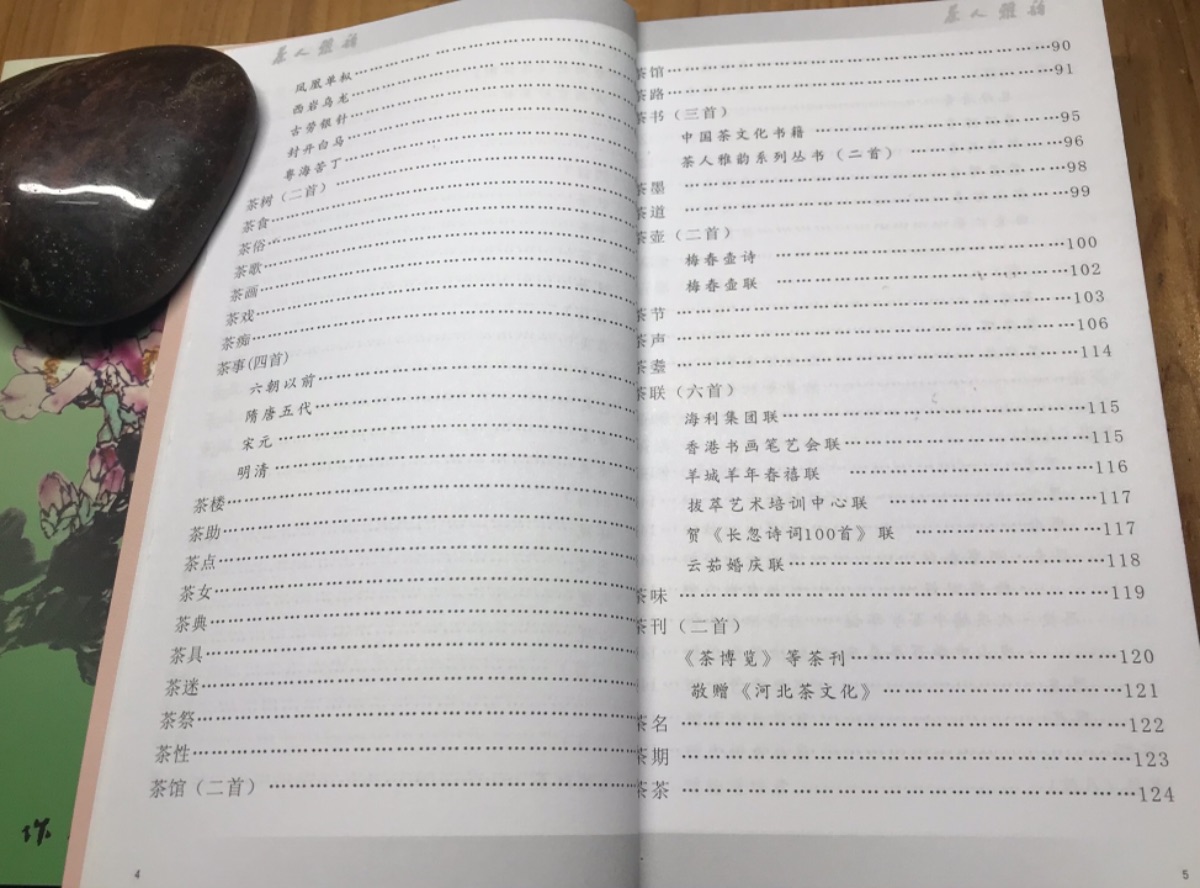 茶人雅韵
凤凰单枞……………………………………
西岩乌龙……………………………………
古劳银针……………………………………
封开白马……………………………………
粤海苦丁……………………………………
茶树（二首）……………………………………
茶食……………………………………
茶俗……………………………………
茶歌……………………………………
茶画……………………………………
茶戏……………………………………
茶痴……………………………………
茶事(四首)
六朝以前……………………………………
隋唐五代……………………………………
宋元……………………………………
明清……………………………………
茶楼……………………………………
茶助……………………………………
茶点……………………………………
茶女……………………………………
茶典……………………………………
茶具……………………………………
茶迷……………………………………
茶祭……………………………………
茶性……………………………………
茶馆（二首）……………………………………
4
茶人雅韵
茶馆……………………………………90
茶路……………………………………91
茶书（三首）
中国茶文化书籍……………………………………95
茶人雅韵系列丛书（二首）……………………………………96
茶墨……………………………………98
茶道……………………………………99
茶壶（二首）
梅春壶诗……………………………………100
梅春壶联……………………………………102
茶节……………………………………103
茶声……………………………………106
茶……………………………………114
茶联（六首）
海利集团联……………………………………115
香港书画笔艺会联……………………………………115
羊城羊年春禧联……………………………………116
拔萃艺术培训中心联……………………………………117
贺《长忽诗词100首》联……………………………………117
云茹婚庆联……………………………………118
茶味……………………………………119
茶刊（二首）
《茶博览》等茶刊……………………………………120
敬赠《河北茶文化》……………………………………121
茶名……………………………………122
茶期……………………………………123
茶茶……………………………………124
5